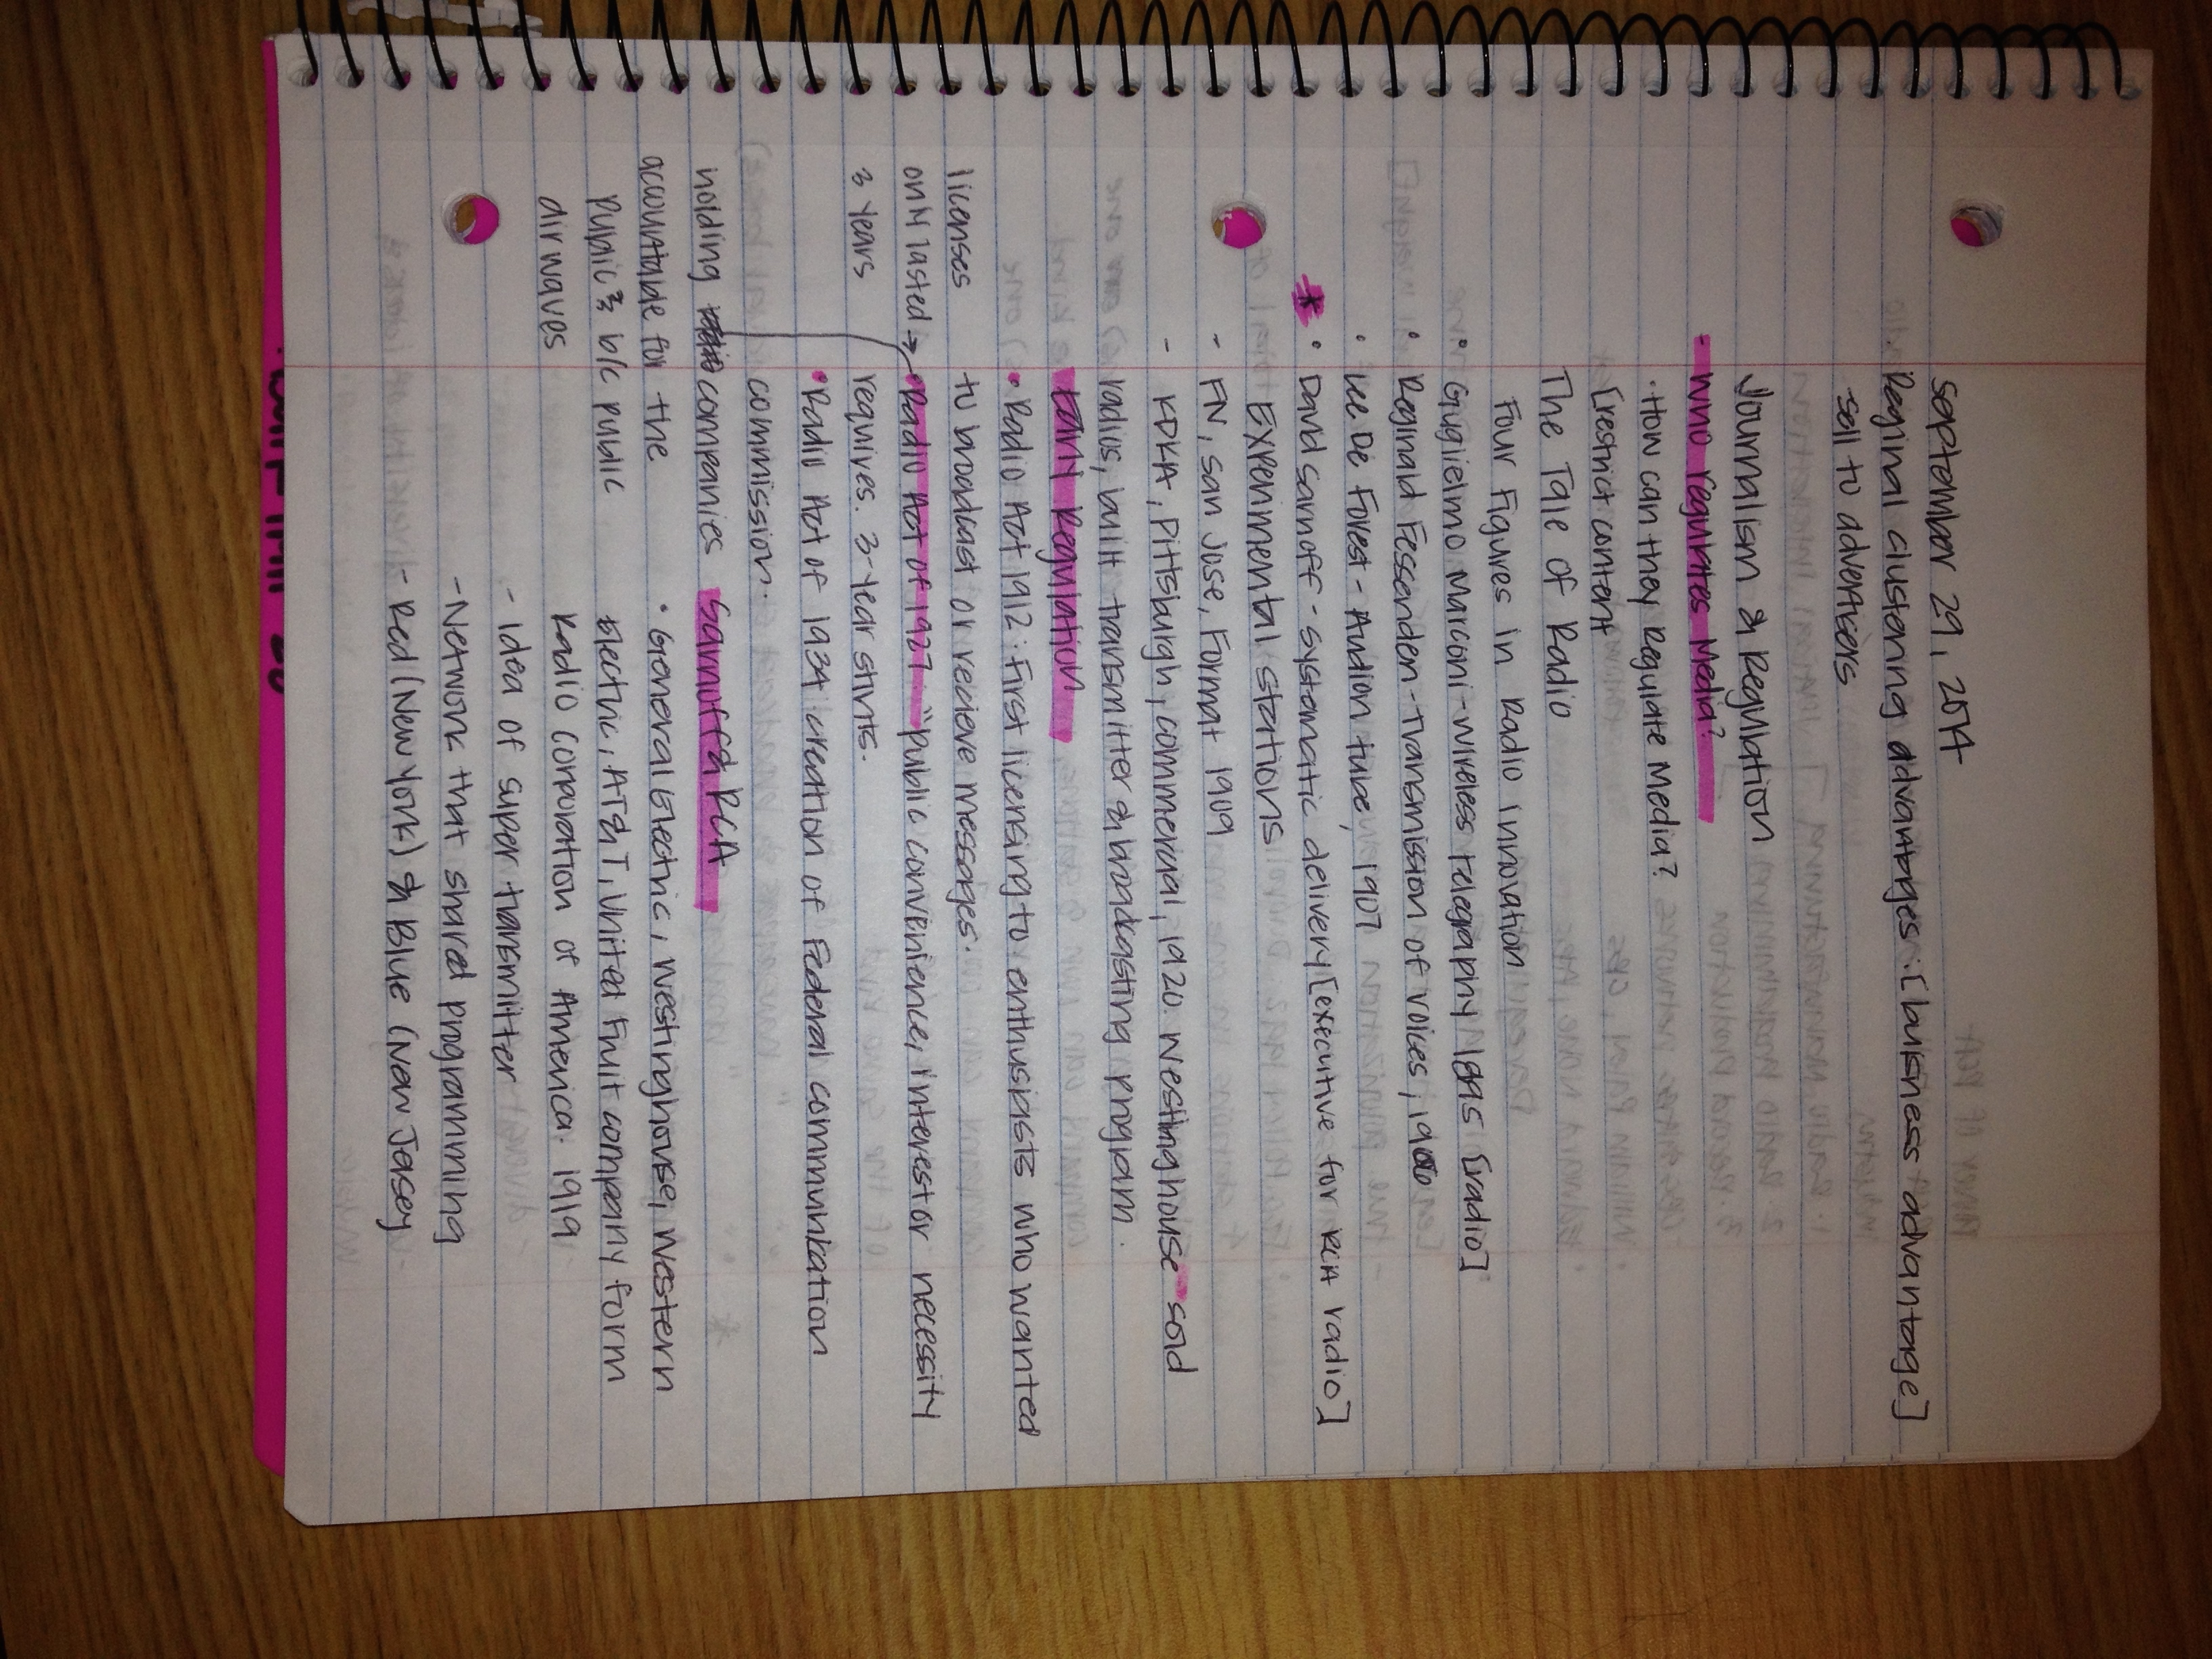 September 29, 2014
· Reginal clustering advantages : [buisness advantage]
- sell to advertisers
Journalism & Regulation
- Who regulates Media?
· How can they Regulate Media?
[restrict content
The Tale of Radio
Four Figures in Radio innovation
· Gugielmo Marconi - wireless telegraphy [radio]
· Reginald Fessenden - transmission of voices,
· Lee De Forest - Audion tube, 1907
* · David Sarnoff - systematic delivery [executive for RCA radio]
Experimental stations
- FN, San Jose, Format 1909
- KDKA, Pittsburgh, commercial, 1920. Westinghouse sold
radios, built transmitter & broadcasting program.
Early Regulation
· Radio Act 1912: First licensing to enthusiasts who wanted
to broadcast or recieve messages.
licenses
only lasted →
3 years
· Radio Act of 1927: "Public convenience, interest or necessity
requires. 3-year stints.
· Radio Act of 1934 creation of Federal communikation
commission.
holding companies
accountable for the
public & b/c public
air waves
Sarnoff & RCA
· General Electric, Westinghouse, Western
Electric, AT&T, United Fruit company form
Radio Corporation of America. 1919
- idea of super transmitter
- Network that shared programming
- Red (New York) & Blue (New Jersey